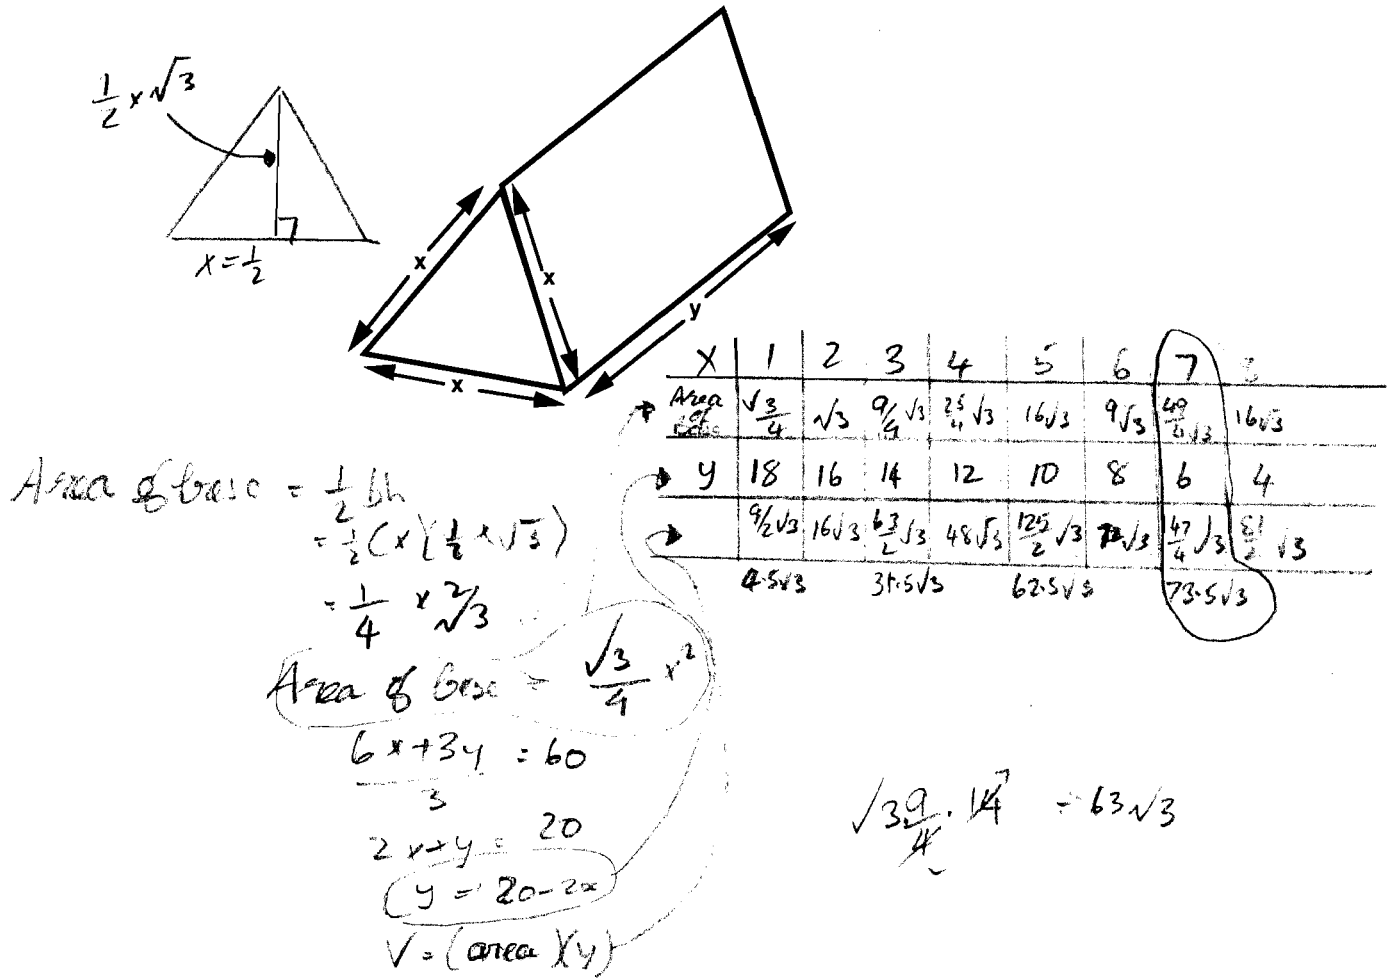 1/2 x √3
x = 1/2
x
x
x
y
X 1 2 3 4 5 6 7 8
Area of base √3/4 √3 9/4 √3 25/4 √3 16√3 9√3 49/4 √3 16√3
y 18 16 14 12 10 8 6 4
9/2 √3 16√3 63/2 √3 48√3 125/2 √3 72√3 147/4 √3 √3
4.5√3 31.5√3 62.5√3 73.5√3
Area of base = 1/2 bh
= 1/2 (x)(1/2 x √3)
= 1/4 x² √3
Area of base = √3/4 x²
6x+3y = 60
3
2x+y = 20
y = 20-2x
V = (area)(y)
√3 9/4 . 14 7 = 63√3